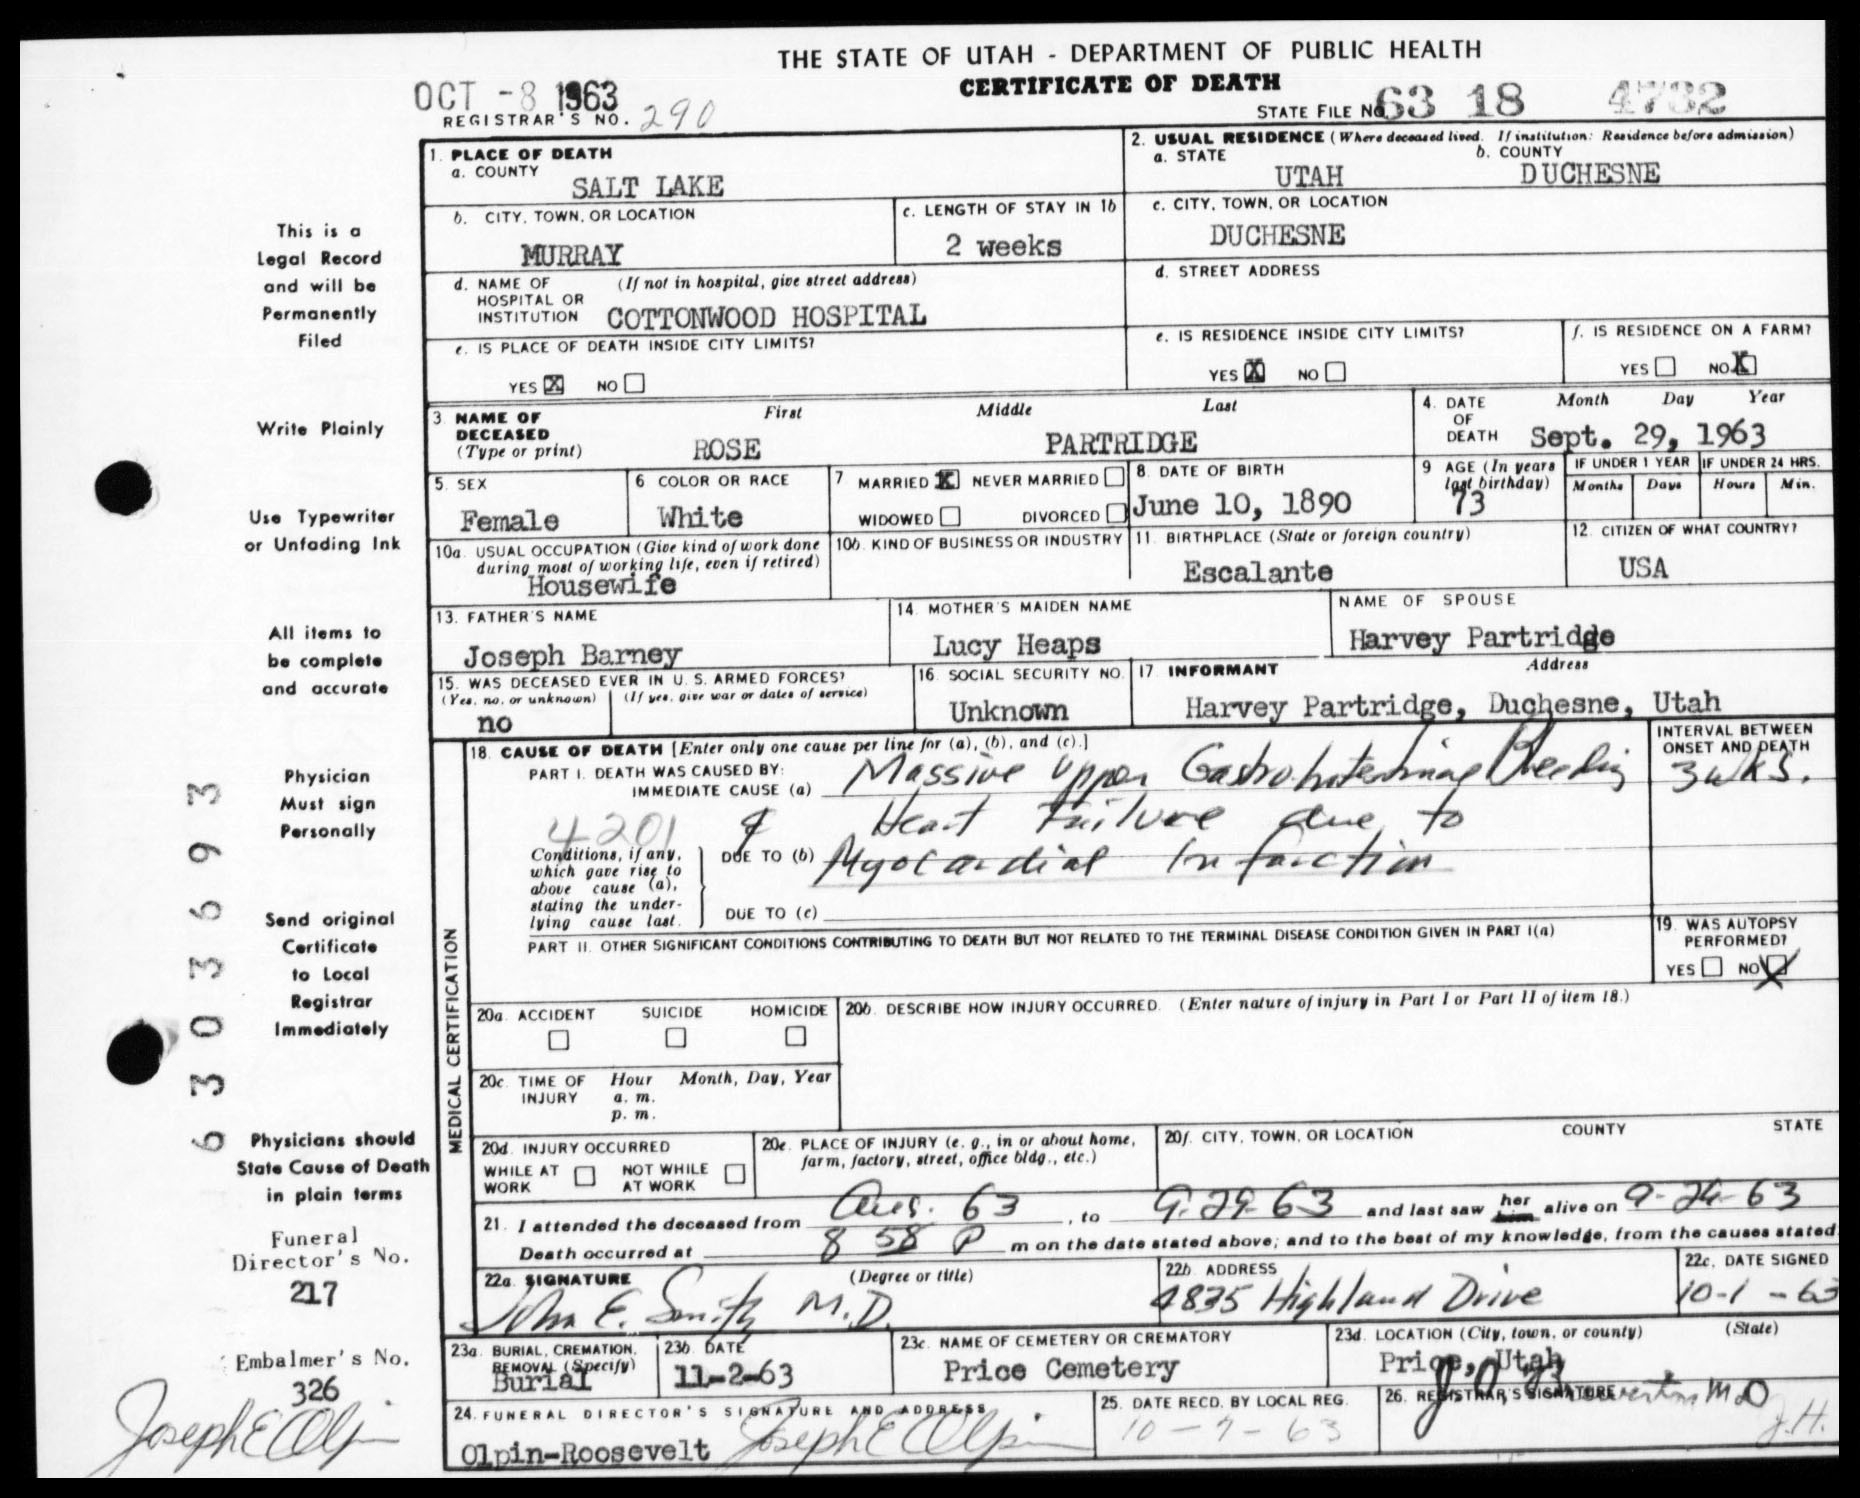 THE STATE OF UTAH - DEPARTMENT OF PUBLIC HEALTH
CERTIFICATE OF DEATH
OCT -8 1963
REGISTRAR'S NO. 290
STATE FILE NO. 63 18 4732
1. PLACE OF DEATH
a. COUNTY
SALT LAKE
2. USUAL RESIDENCE (Where deceased lived. If institution: Residence before admission)
a. STATE b. COUNTY
UTAH DUCHESNE
b. CITY, TOWN, OR LOCATION
MURRAY
c. LENGTH OF STAY IN 1b
2 weeks
c. CITY, TOWN, OR LOCATION
DUCHESNE
d. NAME OF HOSPITAL OR INSTITUTION (If not in hospital, give street address)
COTTONWOOD HOSPITAL
d. STREET ADDRESS
e. IS PLACE OF DEATH INSIDE CITY LIMITS?
YES X NO
e. IS RESIDENCE INSIDE CITY LIMITS?
YES X NO
f. IS RESIDENCE ON A FARM?
YES NO X
3. NAME OF DECEASED (Type or print)
First Middle Last
ROSE PARTRIDGE
4. DATE OF DEATH
Month Day Year
Sept. 29, 1963
5. SEX
Female
6 COLOR OR RACE
White
7 MARRIED X NEVER MARRIED
WIDOWED DIVORCED
8. DATE OF BIRTH
June 10, 1890
9 AGE (In years last birthday)
73
IF UNDER 1 YEAR
Months Days
IF UNDER 24 HRS.
Hours Min.
10a. USUAL OCCUPATION (Give kind of work done during most of working life, even if retired)
Housewife
10b. KIND OF BUSINESS OR INDUSTRY
11. BIRTHPLACE (State or foreign country)
Escalante
12. CITIZEN OF WHAT COUNTRY?
USA
13. FATHER'S NAME
Joseph Barney
14. MOTHER'S MAIDEN NAME
Lucy Heaps
NAME OF SPOUSE
Harvey Partridge
15. WAS DECEASED EVER IN U. S. ARMED FORCES?
(Yes, no, or unknown) (If yes, give war or dates of service)
no
16. SOCIAL SECURITY NO.
Unknown
17. INFORMANT Address
Harvey Partridge, Duchesne, Utah
MEDICAL CERTIFICATION
18. CAUSE OF DEATH [Enter only one cause per line for (a), (b), and (c).]
INTERVAL BETWEEN ONSET AND DEATH
PART I. DEATH WAS CAUSED BY:
IMMEDIATE CAUSE (a) Massive Upper Gastrointestinal Bleeding 3 wks.
4201 & Heart Failure due to
Conditions, if any, which gave rise to above cause (a), stating the underlying cause last.
DUE TO (b) Myocardial Infarction
DUE TO (c)
PART II. OTHER SIGNIFICANT CONDITIONS CONTRIBUTING TO DEATH BUT NOT RELATED TO THE TERMINAL DISEASE CONDITION GIVEN IN PART I(a)
19. WAS AUTOPSY PERFORMED?
YES NO X
20a. ACCIDENT SUICIDE HOMICIDE
20b. DESCRIBE HOW INJURY OCCURRED. (Enter nature of injury in Part I or Part II of item 18.)
20c. TIME OF INJURY
Hour Month, Day, Year
a. m.
p. m.
20d. INJURY OCCURRED
WHILE AT WORK NOT WHILE AT WORK
20e. PLACE OF INJURY (e. g., in or about home, farm, factory, street, office bldg., etc.)
20f. CITY, TOWN, OR LOCATION COUNTY STATE
21. I attended the deceased from Aug. 63, to 9-29-63 and last saw her him alive on 9-29-63
Death occurred at 8 58 P m on the date stated above; and to the best of my knowledge, from the causes stated.
22a. SIGNATURE (Degree or title)
John E. Smith M.D.
22b. ADDRESS
4835 Highland Drive
22c. DATE SIGNED
10-1-63
23a. BURIAL, CREMATION, REMOVAL (Specify)
Burial
23b. DATE
11-2-63
23c. NAME OF CEMETERY OR CREMATORY
Price Cemetery
23d. LOCATION (City, town, or county) (State)
Price, Utah
24. FUNERAL DIRECTOR'S SIGNATURE AND ADDRESS
Olpin-Roosevelt Joseph E Olpin
25. DATE RECD. BY LOCAL REG.
10-7-63
26. REGISTRAR'S SIGNATURE
M D
J.H.
This is a
Legal Record
and will be
Permanently
Filed
Write Plainly
Use Typewriter
or Unfading Ink
All items to
be complete
and accurate
Physician
Must sign
Personally
Send original
Certificate
to Local
Registrar
Immediately
Physicians should
State Cause of Death
in plain terms
Funeral
Director's No.
217
Embalmer's No.
326
Joseph E Olpin
6303693